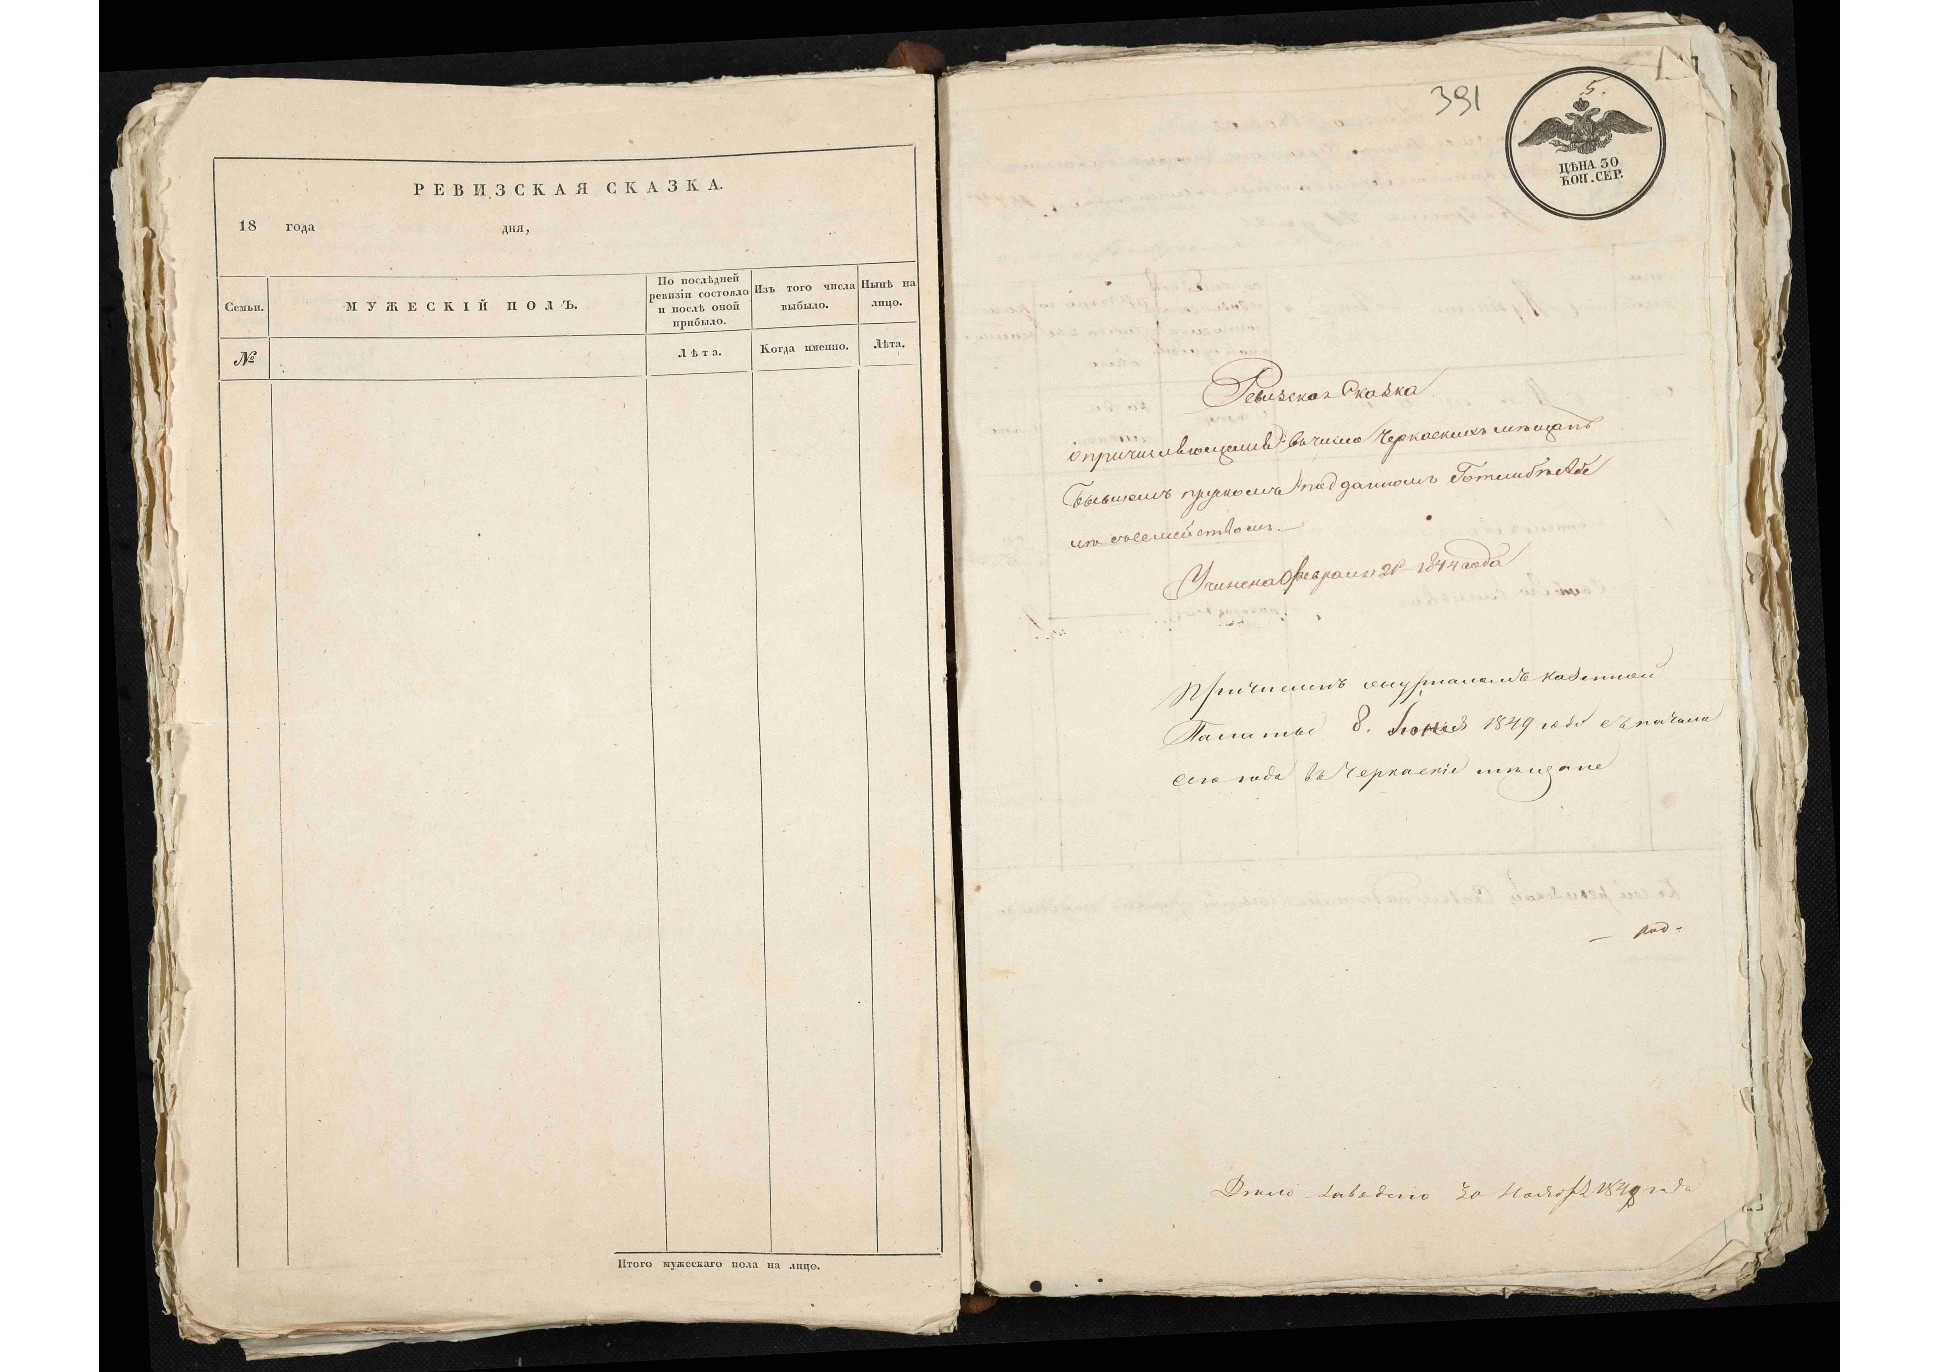 РЕВИЗСКАЯ СКАЗКА.
18 года дня,
Семьи.
МУЖЕСКІЙ ПОЛЪ.
По послѣдней ревизіи состояло и послѣ оной прибыло.
Изъ того числа выбыло.
Нынѣ на лицо.
№
Лѣта.
Когда именно.
Лѣта.
Итого мужескаго пола на лицо.
391
5.
ЦѢНА 30
КОП. СЕР.
Ревизская Сказка
о причисляющемся въ число Черкаскихъ мѣщанъ
бывшемъ прускомъ подданномъ Готлибѣ
съ семействомъ.
Учинена февраля 21 1844 года
Причисленъ журналомъ казенной
Палаты 8. Іюня 1849 года съ начала
сего года въ Черкаскіе мѣщане
Дѣло заведено 30 Ноября 1848 года